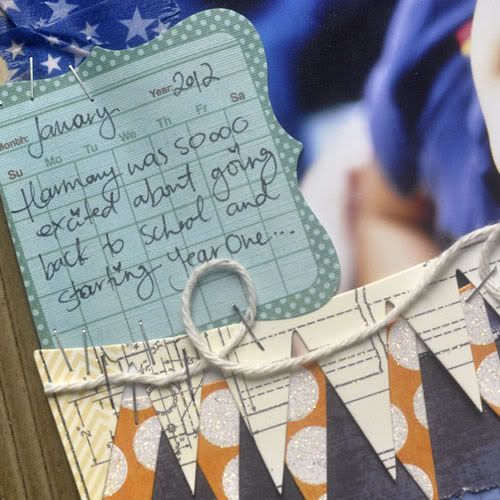 Month: January Year: 2012
Su Mo Tu We Th Fr Sa
Harmony was soooo
excited about going
back to school and
starting Year One...